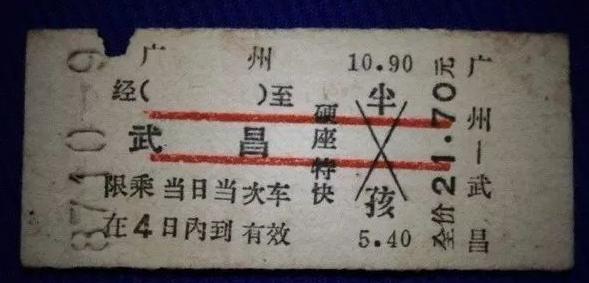 广 州 10.90
经( )至 半
武 昌
硬座特快
限乘当日当次车 孩
在4日内到有效 5.40
全价21.70元
广州—武昌